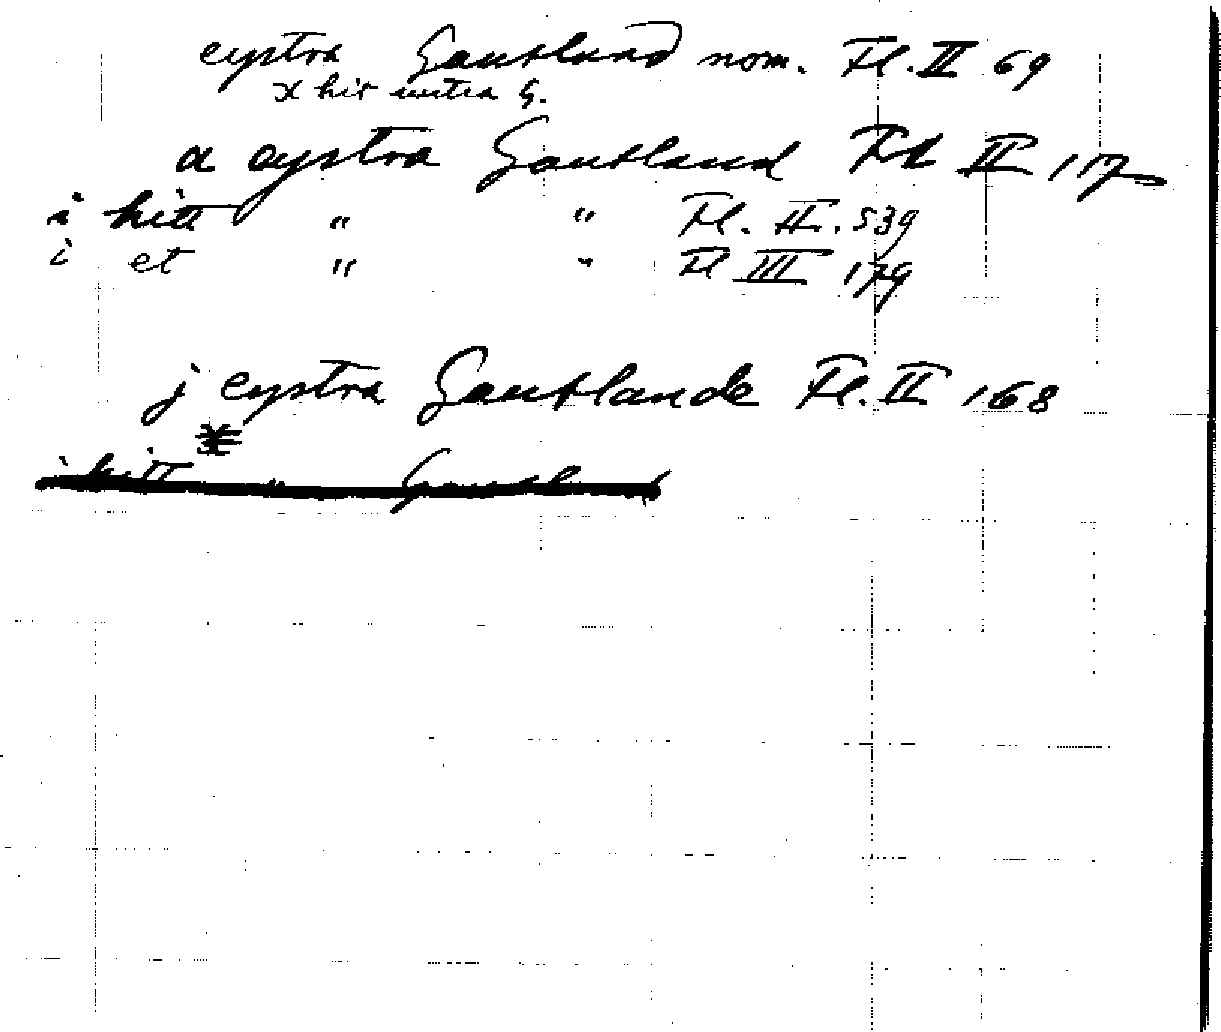 eystra Gautland nom. Fl. II 69
x hit
a eystra Gautland Fl II 117
i hitt " " Fl. II. 539
i et " " Fl III 179
j eystra Gautlande Fl. II 168
i hitt " Gautland